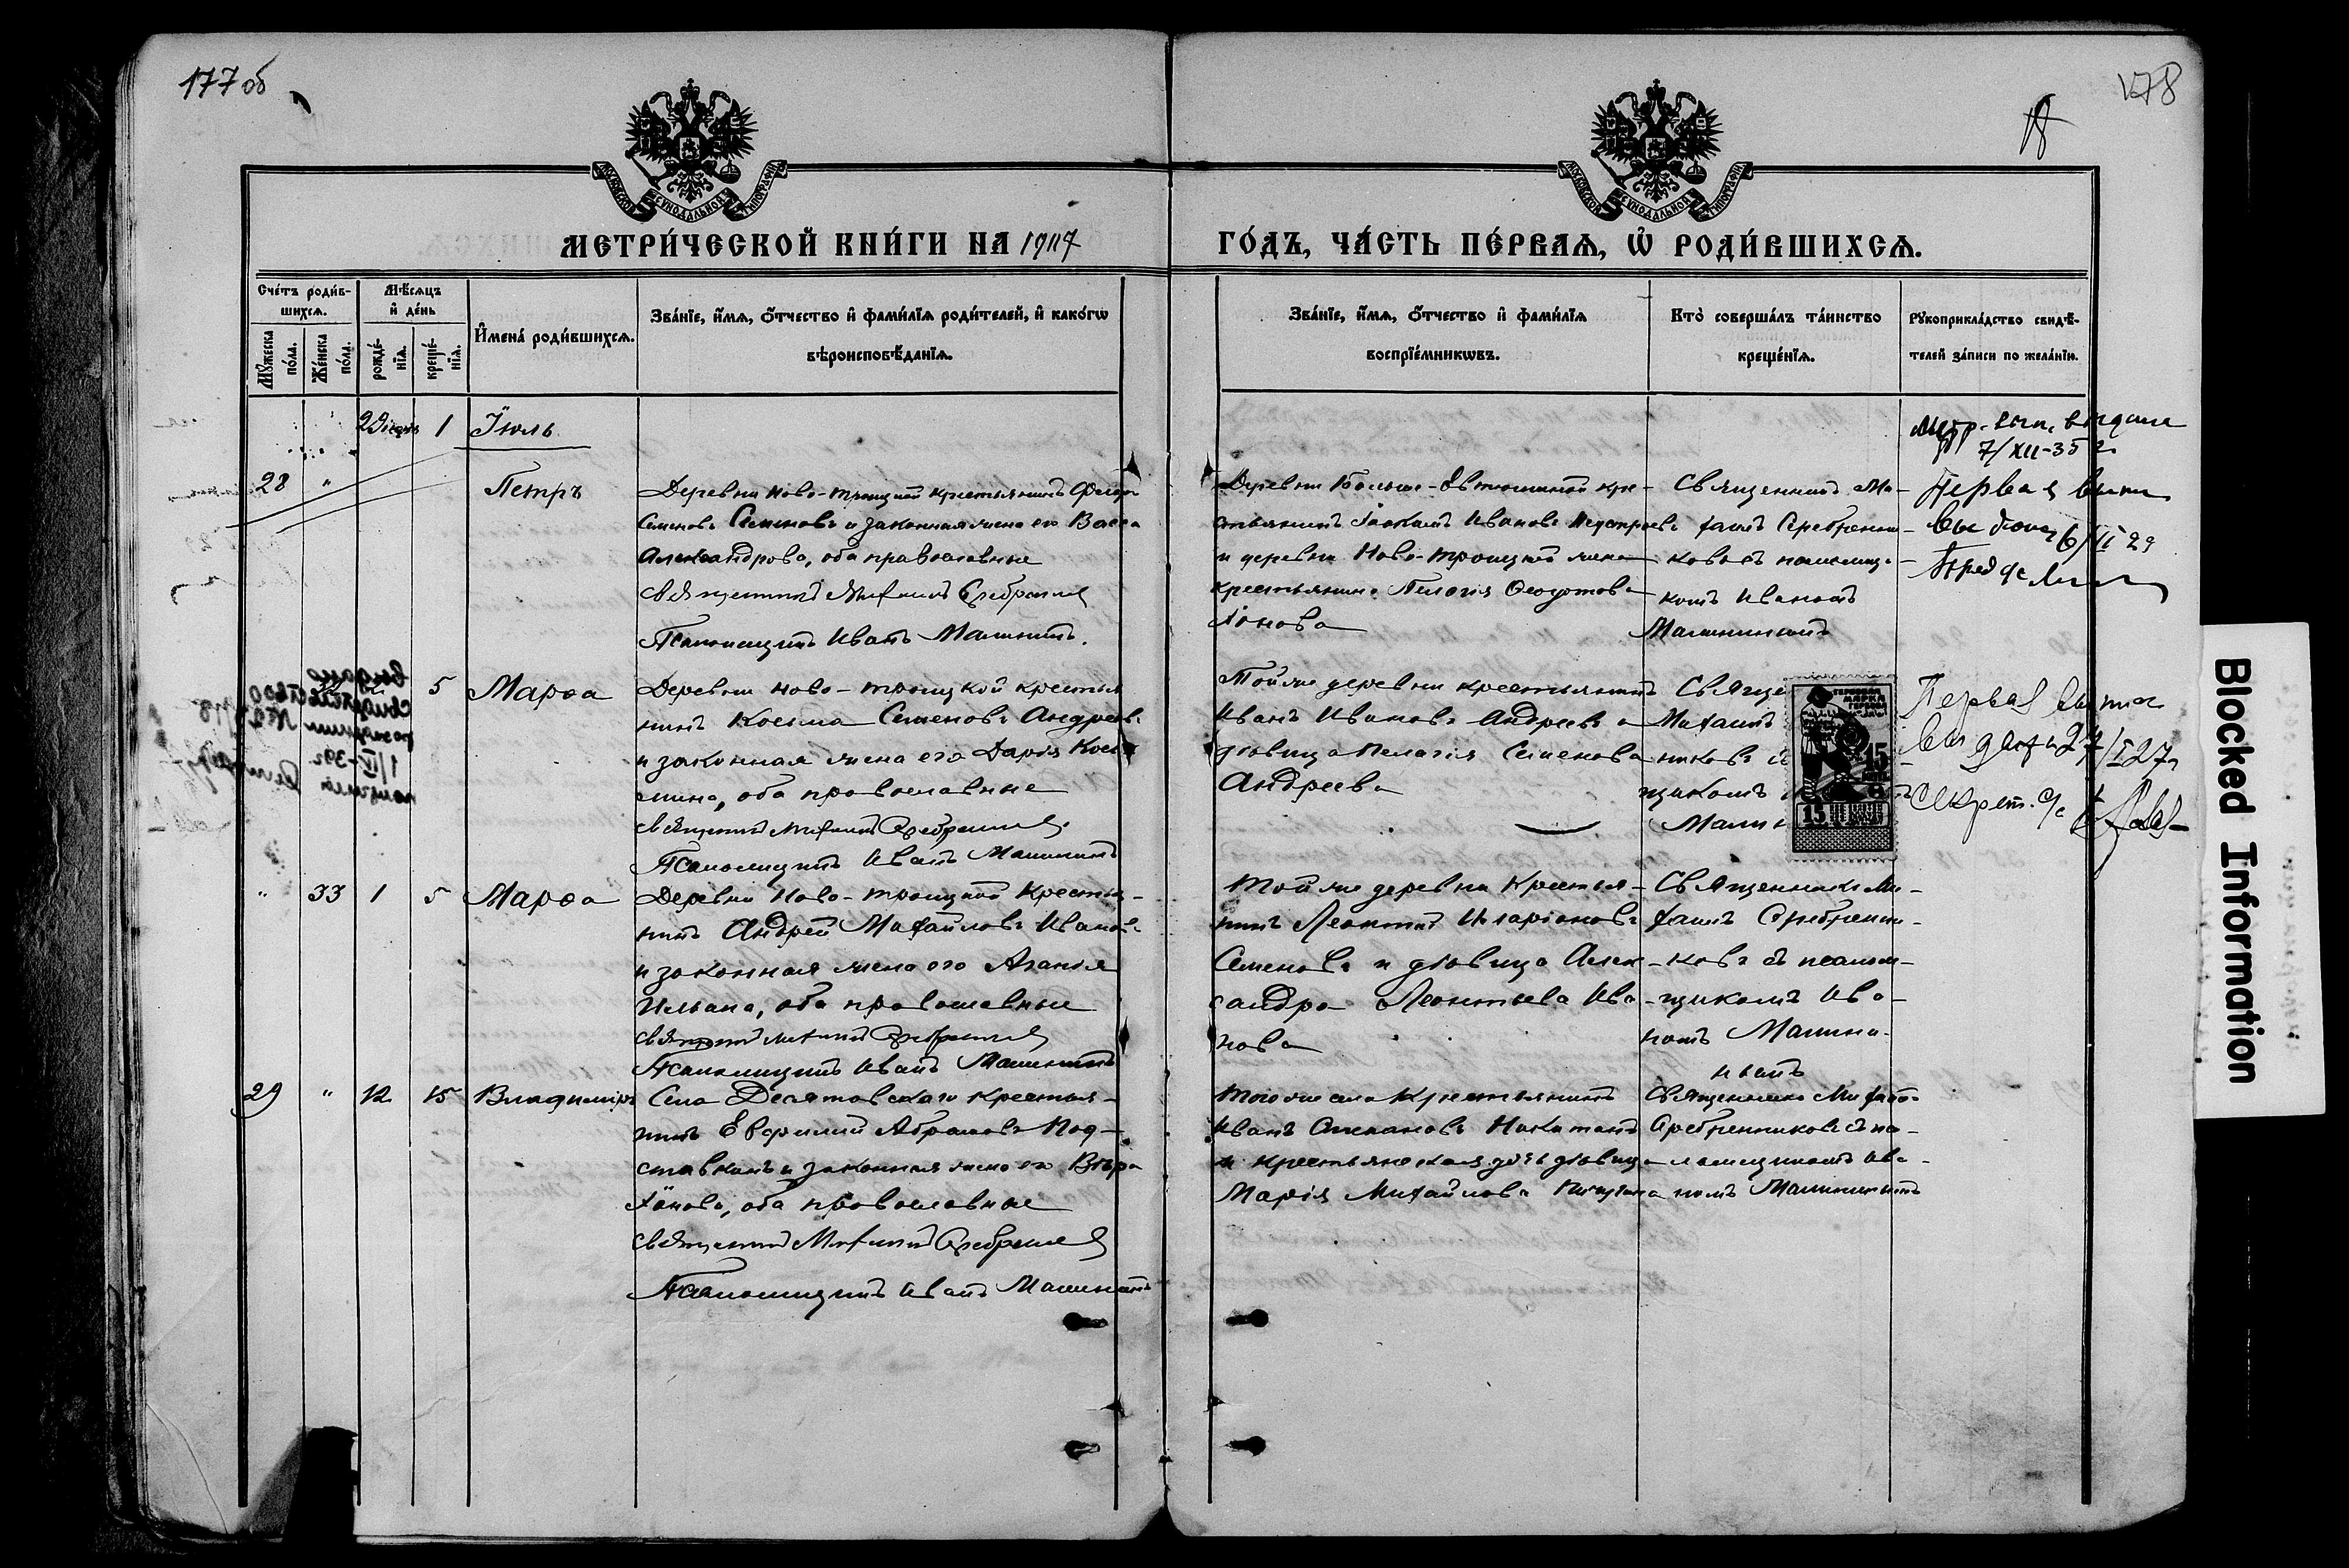 177 об
178
18
МОСКОВСКОЙ СѴНОДАЛЬНОЙ ТИПОГРАФІИ
МОСКОВСКОЙ СѴНОДАЛЬНОЙ ТИПОГРАФІИ
МЕТРИ́ЧЕСКОЙ КНИ́ГИ НА 1917
ГО́ДЪ, ЧА́СТЬ ПЕ́РВАѦ, Ѽ РОДИ́ВШИХСѦ.
Сче́тъ роди́в-
шихсѧ.
Мꙋ́жеска
по́ла.
Же́нска
по́ла.
Мѣ́сѧцъ
и҆ де́нь
рожде́-
нїѧ.
креще́-
нїѧ.
И҆мена̀ роди́вшихсѧ.
Зва́нїе, и҆́мѧ, ѻ҆́тчество и҆ фами́лїѧ роди́телей, и҆ како́гѡ
вѣроисповѣ́данїѧ.
Зва́нїе, и҆́мѧ, ѻ҆́тчество и҆ фами́лїѧ
воспрїе́мникѡвъ.
Кто̀ соверша́лъ та́инство
креще́нїѧ.
Рꙋкоприкла́дство свидѣ́-
телей за́писи по жела́нїю.
1 Іюль
28 " Петръ
Деревни Ново-Троицкой крестьянинъ
Семеновъ Семеновъ и законная жена его Васса
Александрова, оба православные
Священникъ Михаилъ Серебренников
Псаломщикъ Иванъ Малининъ.
Деревни Больше- кре-
стьянинъ Іоакимъ Ивановъ
и деревни Ново-Троицкой жена
крестьянина Пелагія Ѳеодотова
Іонова
Священникъ Ми-
хаилъ Серебренни-
ковъ съ псаломщи-
комъ Иваномъ
Малининымъ
Метр. вып. выдана
7/XII-35 г.
Первая выпи
выдана 6/II 29
Пред с/с
5 Марѳа
Деревни Ново-Троицкой крестья
нинъ Косьма Семеновъ Андреевъ
и законная жена его Дарія Кось
мина, оба православные
Священникъ Михаилъ Серебренников
Псаломщикъ Иванъ Малининъ
Той же деревни крестьянинъ
Иванъ Ивановъ Андреевъ и
дѣвица Пелагія Семенова
Андреева
Свяще
Михаилъ
никовъ съ
щикомъ
Малин
ГЕРБОВАЯ
МАРКА
15
15
Первая выпи
выдана 27/I 27г
Секрет. с/с
выдано
свидетельство
рождении №
1/IV-39г.
получил
" 33 1 5 Марѳа
Деревни Ново-Троицкой Крестья-
нинъ Андрей Михайловъ Ивановъ
и законная жена его Аганія
Ильина, оба православные
Священникъ Михаилъ Серебренников
Псаломщикъ Иванъ Малининъ
Той же деревни Крестья-
нинъ Леонтій Иларіоновъ
Семеновъ и дѣвица Алек-
сандра Леонтьева Ива-
нова
Священникъ Ми-
хаилъ Серебренни-
ковъ съ псалом-
щикомъ Ива-
номъ Малини-
нымъ
29 " 12 15 Владиміръ
Села Десятовскаго крестья-
нинъ Евфимій Абрамовъ Под-
ставкинъ и законная жена его Вѣра
Іонова, оба православные
Священникъ Михаилъ Серебренников
Псаломщикъ Иванъ Малининъ
Того же села Крестьянинъ
Иванъ Степановъ Никитинъ
и крестьянская дочь дѣвица
Марія Михайлова
Священникъ Михаилъ
Серебренниковъ съ пса-
ломщикомъ Ива-
номъ Малининымъ
Blocked Information